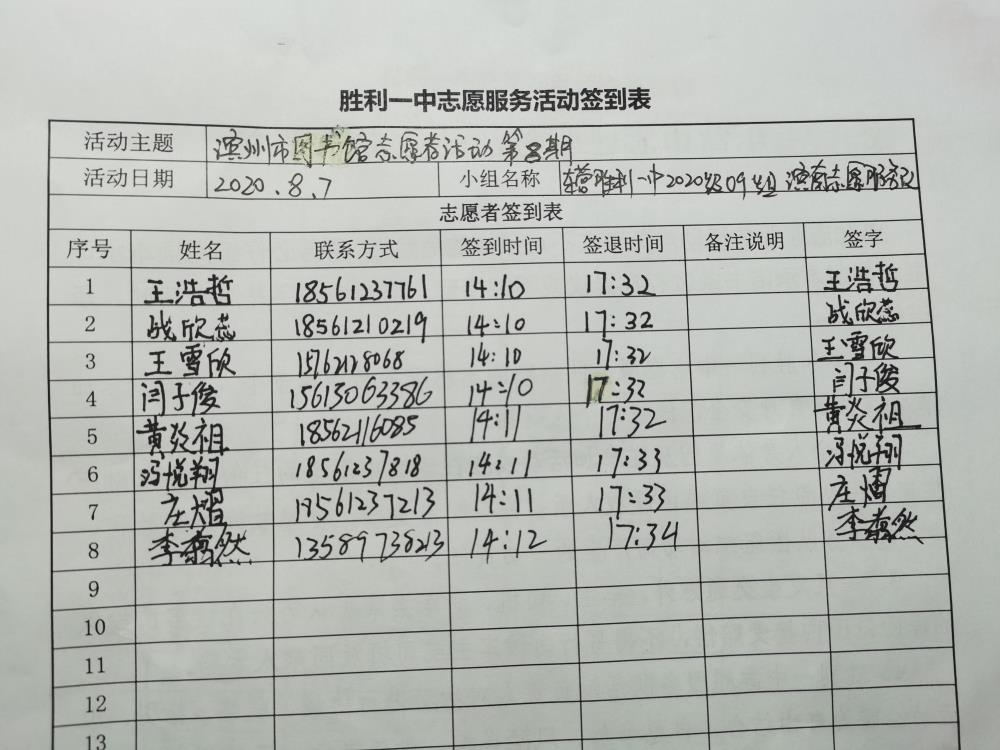 胜利一中志愿服务活动签到表
活动主题 滨州市图书馆志愿者活动第三期
活动日期 2020.8.7 小组名称 东营胜利一中2020级09组 志愿服务队
志愿者签到表
序号 姓名 联系方式 签到时间 签退时间 备注说明 签字
1 王浩哲 18561237761 14:10 17:32 王浩哲
2 战欣蕊 18561210219 14:10 17:32 战欣蕊
3 王雪欣 15762128068 14:10 17:32 王雪欣
4 闫子俊 15615063386 14:10 17:32 闫子俊
5 黄炎祖 18562116085 14:11 17:32 黄炎祖
6 冯悦翔 18561237818 14:11 17:33 冯悦翔
7 庄熠 18561237213 14:11 17:33 庄熠
8 李然 13589738213 14:12 17:34 李然
9
10
11
12
13